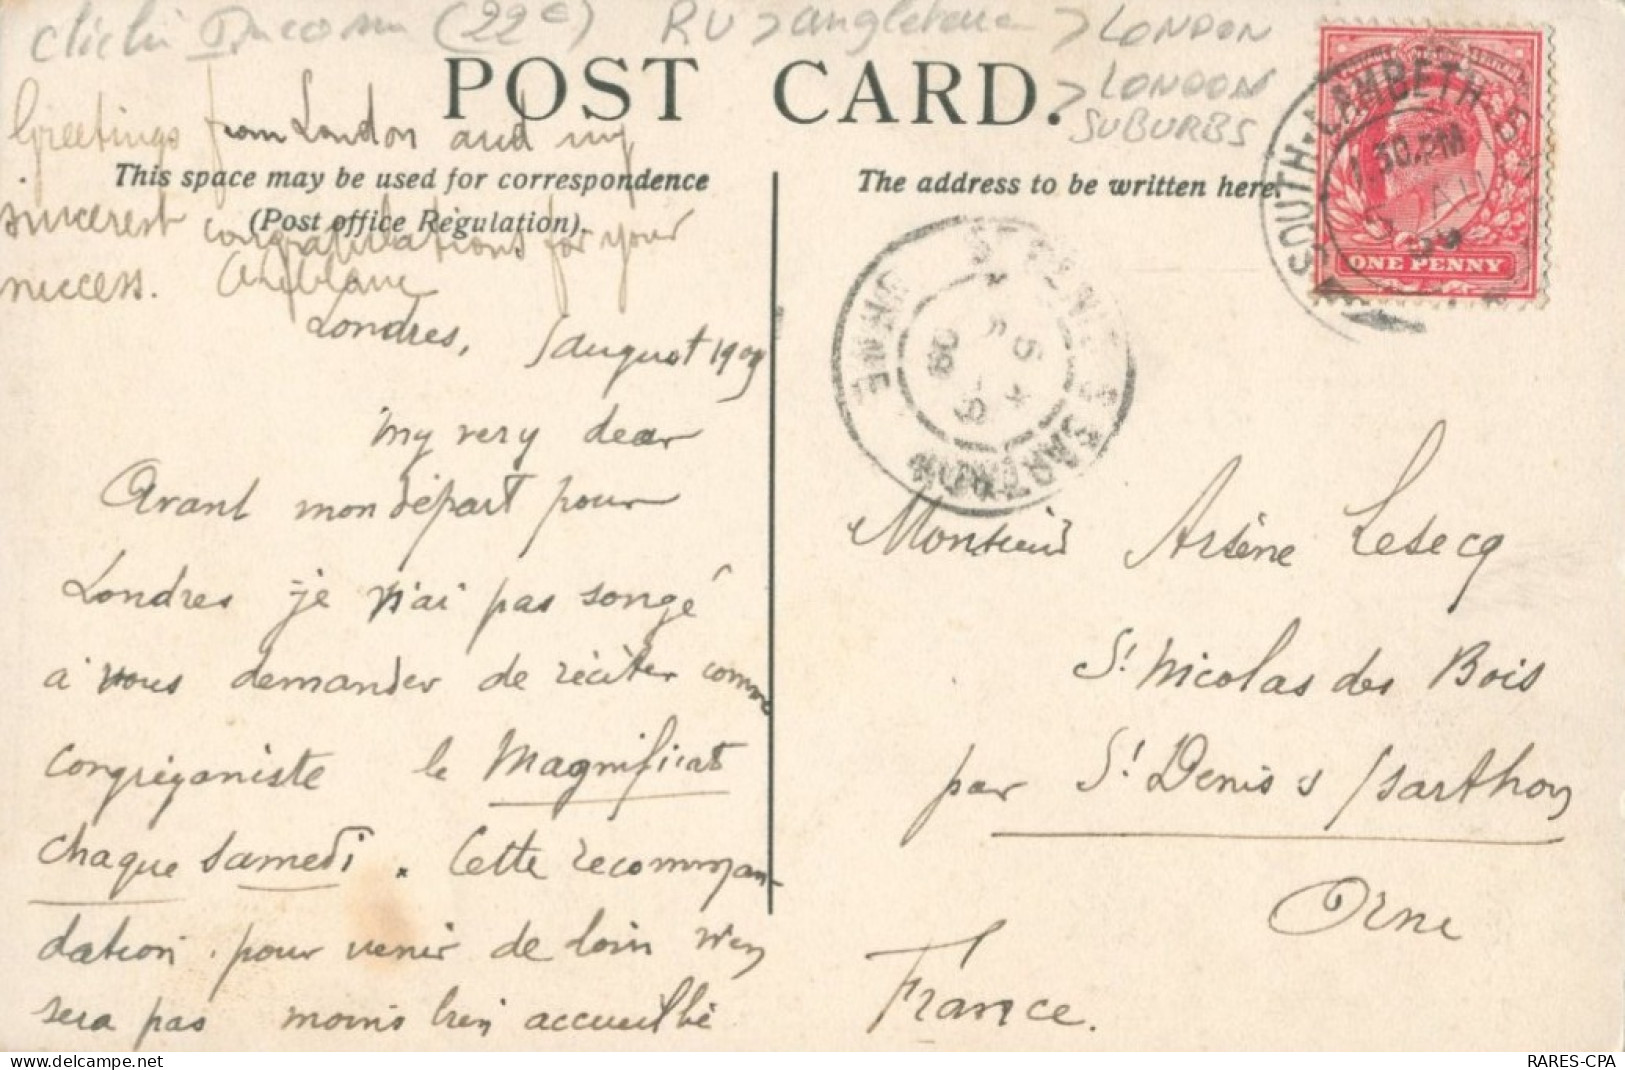 (22€) RU > angleterre > LONDON
> LONDON
SUBURBS
POST CARD.
Greetings from London and my
This space may be used for correspondence
sincerest congratulations for your
(Post office Regulation).
success.
Londres, 5 august 1909
My very dear
Avant mon départ pour
Londres je n'ai pas songé
à vous demander de réciter comme
congréganiste le Magnificat
chaque samedi. Cette recomman-
dation pour venir de loin n'en
sera pas moins bien accueillie
The address to be written here.
SOUTH-LAMBETH S.O.
1.30.PM
5 AU
09
ONE PENNY
ST DENIS S SARTHON
ORNE
Monsieur Arsène Lesecq
St Nicolas des Bois
par St Denis s/sarthon
Orne
France.
www.delcampe.net
RARES-CPA